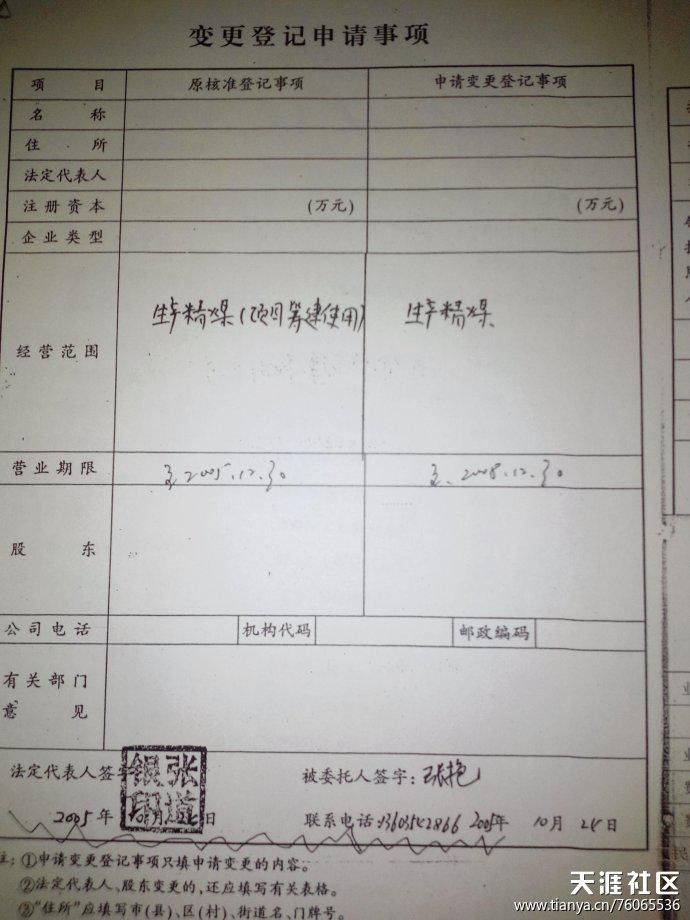 变更登记申请事项
项 目 原核准登记事项 申请变更登记事项
名 称
住 所
法定代表人
注册资本 (万元) (万元)
企业类型
经营范围 生产精煤(项目筹建使用) 生产精煤
营业期限 至2005.12.30 至2008.12.30
股 东
公司电话 机构代码 邮政编码
有关部门
意 见
法定代表人签字 张道银印 被委托人签字:张艳
2005年10月24日 联系电话: 2005年10月24日
注:①申请变更登记事项只填申请变更的内容。
②法定代表人、股东变更的,还应填写有关表格。
③"住所"应填写市(县)、区(村)、街道名、门牌号。
天涯社区
www.tianya.cn/76065536